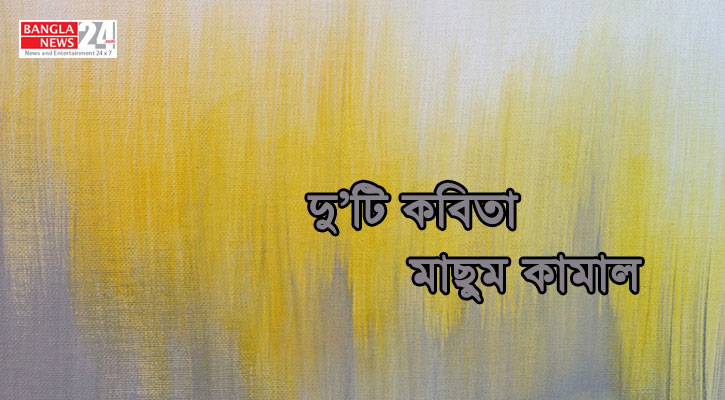 BANGLA
NEWS
24.com
News and Entertainment 24 x 7
দু’টি কবিতা
মাছুম কামাল